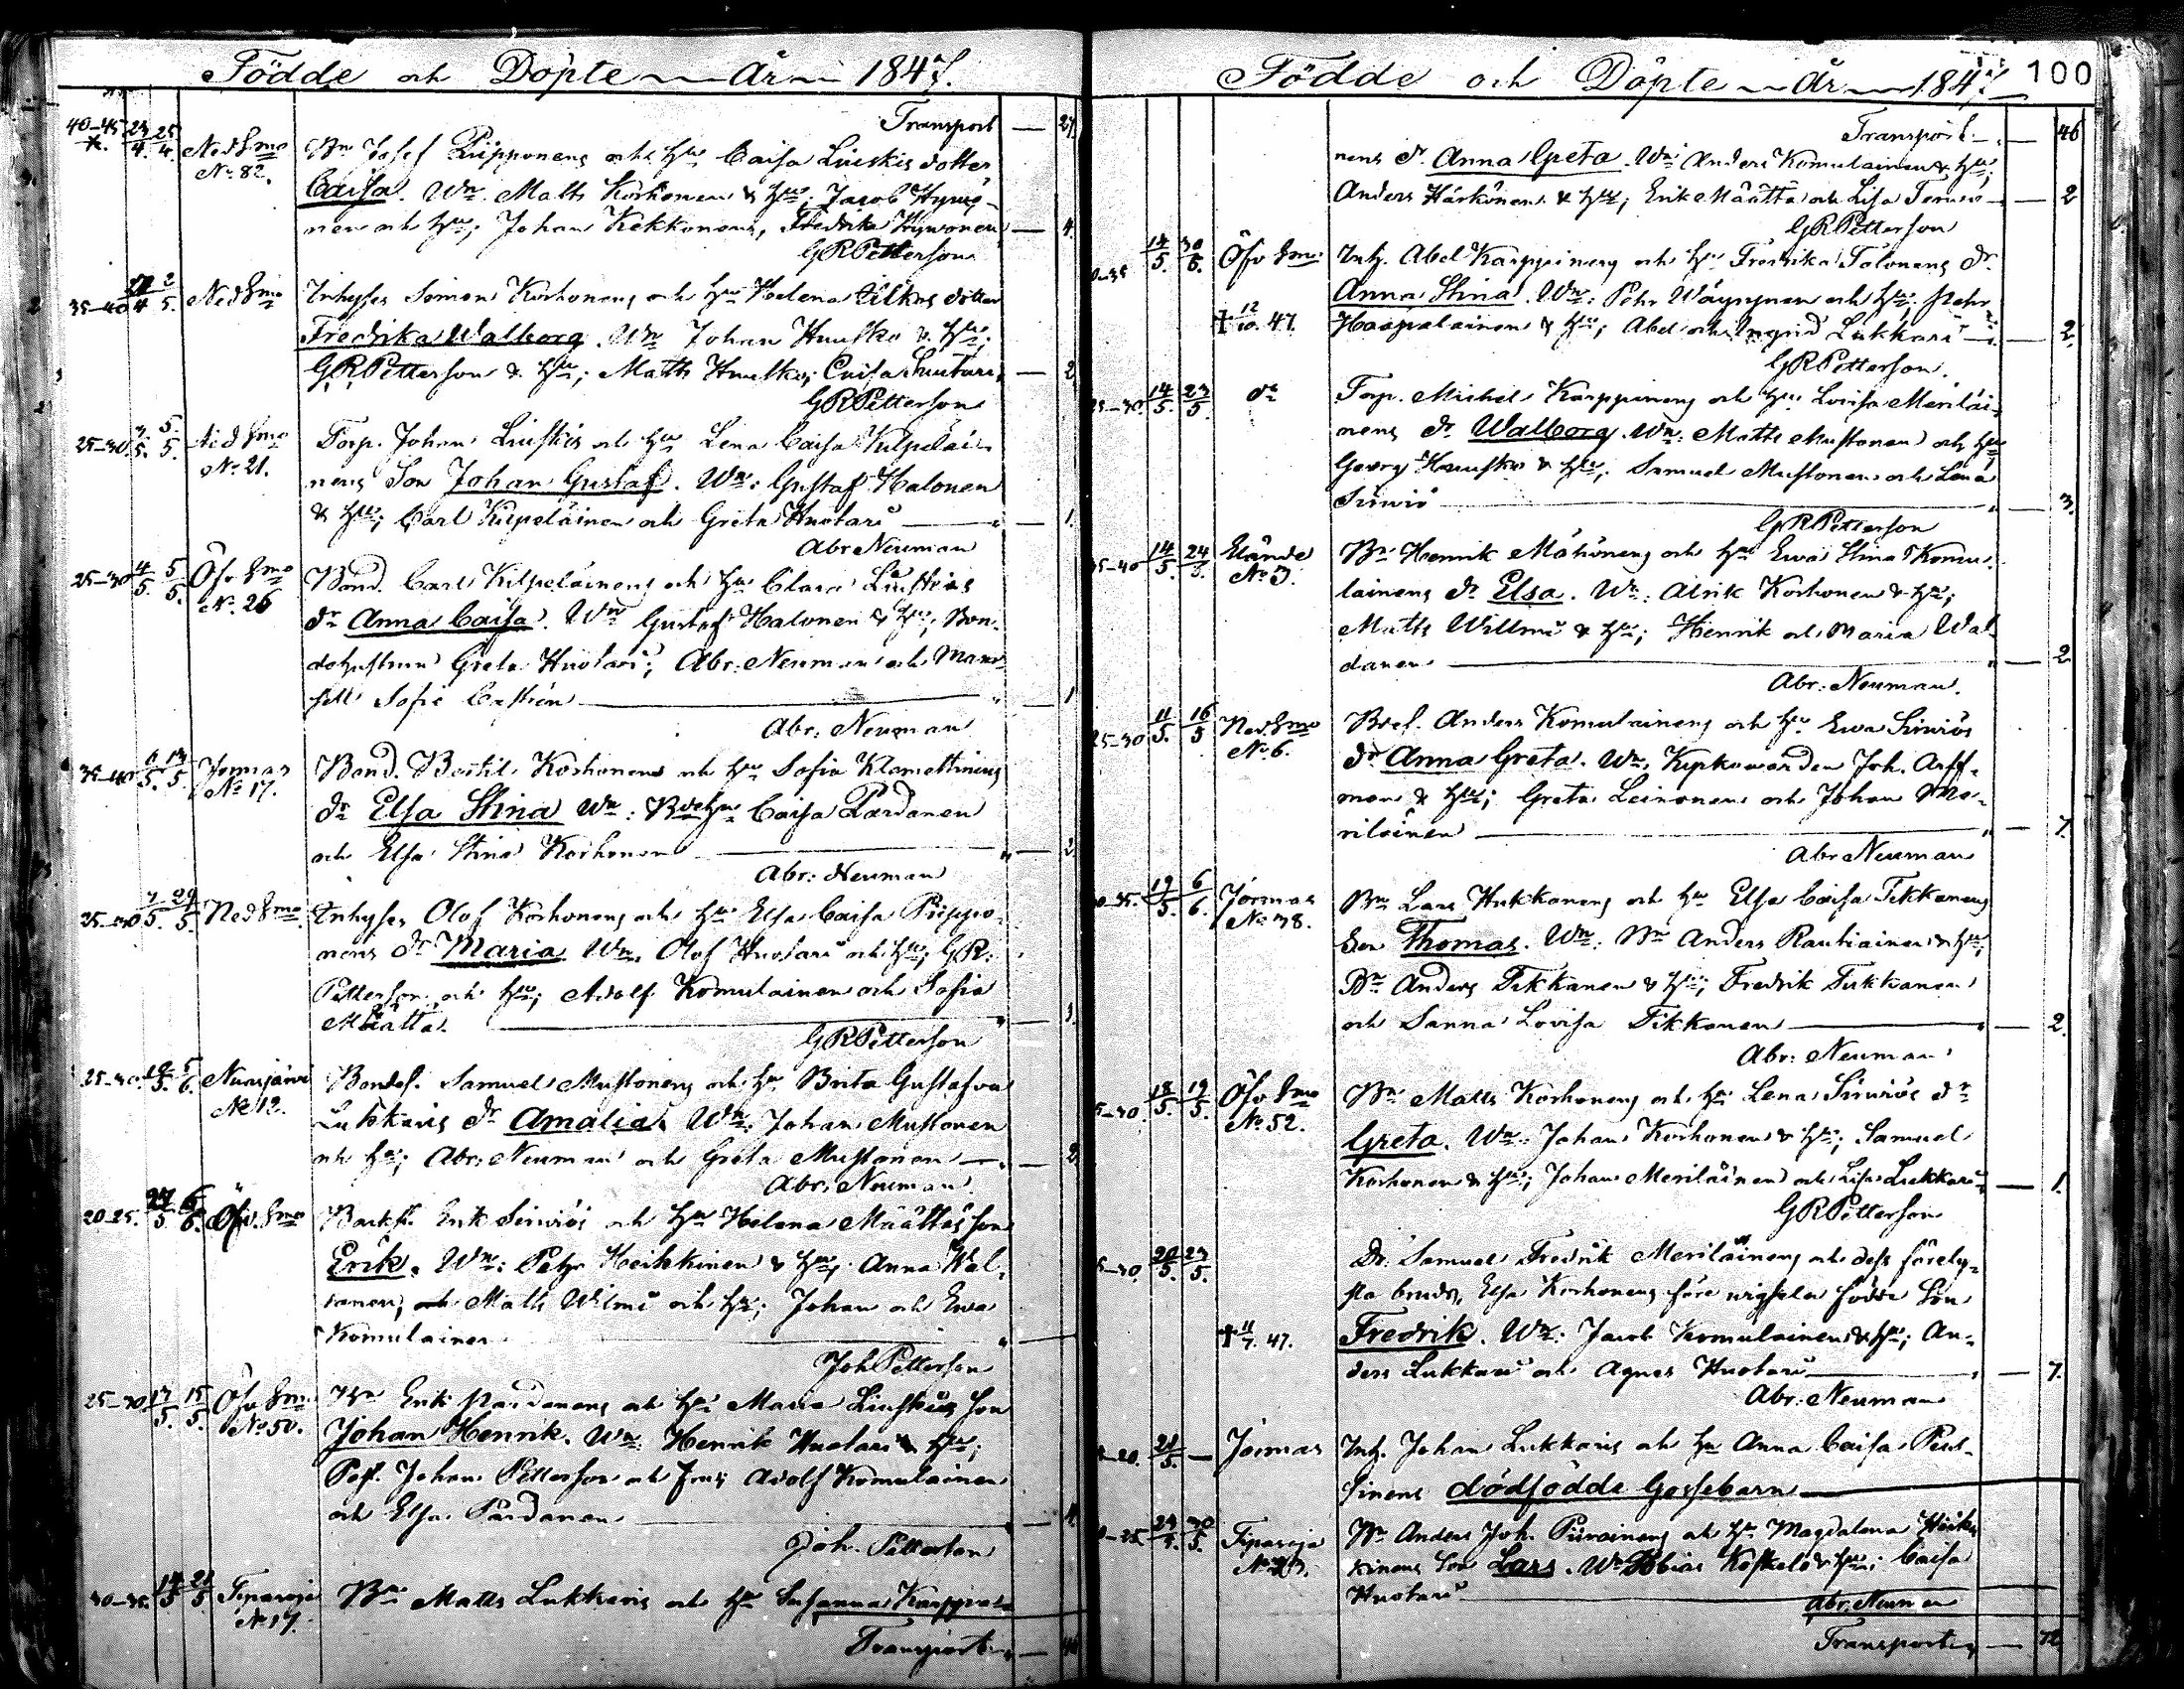 Födde och Döpte År 1847.
Transport — 27.
40-45 23/4. 25/4. Ned Smo Bn Josef Piipponens och hu Caisa Liuskis dotter
No 82. Caisa. Wn. Matts Korhonen & hu; Jacob Hyvö-
nen och hu; Johan Kekkonen, Fredrika Hyvönen — 4.
GRPetterson
35-40 2/5. Ned Smo Inhyses Simon Korhonens och hu Helena Tilkus dotter
Fredrika Walborg. Wn Johan Huusko & hu;
GRPetterson & hu; Matts Huusko; Caisa Huotari — 2
GRPetterson
25-30 5/5. Ned Smo Torp. Johan Liuskis och hu Lena Caisa Kilpeläi-
No 21. nens Son Johan Gustaf. Wn: Gustaf Halonen
& hu; Carl Kilpeläinen och Greta Huotari — 1.
Abr Neuman
25-30 4/5. 5/5. Öfv Smo Bond. Carl Kilpeläinens och hu Clara Liuskis
No. 26 dr Anna Caisa. Wn Gustaf Halonen & hu; Bon-
dehustrun Greta Huotari; Abr. Neuman och Mam-
sell Sofie Castrén — 1
Abr: Neuman
35-40 6/5. 13/5. Jormas Bond. Bertil Korhonens och hu Sofia Klemettinens
No 17. dr Elsa Stina Wn: Bdehu Caisa Pardanen
och Elsa Stina Korhonen — 2
Abr: Neuman
25-30 7/5. 29/5. Ned Smo. Inhyses Olof Korhonens och hu Elsa Caisa Piippo-
nens dr Maria Wn. Olof Huotari och hu; GR.
Petterson och hu; Adolf Komulainen och Sofia
Määttä. — 3.
GRPetterson
25-30 5/6. Nuasjärvi Bondes. Samuel Mustonens och hu Brita Gustafva
No 12. Lukkaris dr Amalia. Wn. Johan Mustonen
och hu; Abr: Neuman och Greta Mustonen — 2
Abr: Neuman.
20-25. 27/5 6/6. Öfv. Smo Backst. Erik Sirviös och hu Helena Määttäs son
Erik. Wn: Pehr Heikkinen & hu; Anna Wal-
danen; Matts Wilmi och hu; Johan och Ewa
Komulainen —
Joh Petterson
25-30 17/5. 15/5. Öfv Smo Bn Erik Pardanens och hu Maria Liuskis son
No 50. Johan Henrik. Wn: Henrik Huotari & hu;
Johan Petterson och fru; Adolf Komulainen
och Elsa Pardanen — 4.
Joh. Petterson
30-35. 14/5 21/5 Tiparoja Bn Matts Lukkaris och hu Susanna Karppi-
No 17.
Transport — 46
Födde och Döpte År 1847 100
Transport — 46
nens dr. Anna Greta. Wn: Anders Komulainen & hu;
Anders Härkönen & hu; Erik Määttä och Lisa Sirviö — 2
GRPetterson
14/5. 30/5. Öfv Smo: Inh. Abel Karppinens och hu Fredrika Tolonens dr.
Anna Stina. Wn: Pehr Wäyrynen och hu; Pehr
† 12/10. 47. Haapalainen & hu; Abel och Ingrid Lukkari — 2.
GRPetterson.
25-30. 14/5. 23/5. do Torp. Michel Karppinens och hu Lovisa Meriläi-
nens dr. Walborg. Wn: Matts Mustonen och hu
Georg Huusko & hu; Samuel Mustonen och Lena
Sirviö — 3.
GRPetterson
35-40 14/5. 24/5. No 3. Bn Henrik Mähönens och hu Ewa Stina Komu-
lainens dr Elsa. Wn: Alrik Korhonen & hu;
Matts Willmi & hu; Henrik och Maria Wal-
danen — 2
Abr: Neuman.
25-30 11/5. 16/5 Ned. Smo Bdes. Anders Komulainens och hu Ewa Sirviös
No. 6. dr Anna Greta. Wn. Kyrkowärden Joh. Arff-
man & hu; Greta Leinonen och Johan Me-
riläinen — 7.
Abr Neuman
30-35. 19/5. 6/6. Jormas Bn Lars Hukkanens och hu Elsa Caisa Tikkanens
No 38. Son Thomas. Wn: Bn Anders Rautiainen & hu;
Bn Anders Tikkanen & hu; Fredrik Tikkanen
och Sanna Lovisa Tikkanen — 2.
Abr: Neuman
25-30. 18/5. 19/5. Öfv Smo Bn Matts Korhonens och hu Lena Sirviös dr
No. 52. Greta. Wn: Johan Korhonen & hu; Samuel
Korhonen & hu; Johan Meriläinen och Lisa Lukkari — 1.
GRPetterson
25-30. 20/5. 23/5. Dr: Samuel Fredrik Meriläinens och dess förelof-
sta bruds, Elsa Korhonens före wigseln födde Son
† 11/7. 47. Fredrik. Wn: Jacob Komulainen & hu; An-
ders Lukkari och Agnes Huotari — 7.
Abr: Neuman
21/5. — Jormas Inh. Johan Lukkaris och hu Anna Caisa Pus-
sinens dödfödde Gossebarn —
20-25 23/5. 30/5. Tiparoja Bn Anders Joh. Piirainens och hu Magdalena Heik-
kinens Son Lars. Wn Tobias Koskelo & hu; Caisa
Huotari —
Abr. Neuman
Transport — 72